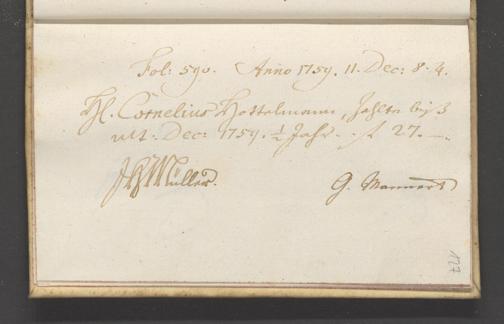 Fol: 590. Anno 1759. 11. Dec: 8.4.
Hl. Cornelius Hottelmann, Zahlte biß
ult. Dec: 1759. ½ Jahr. . f 27. —.
JHMüller. G. Mannert
127